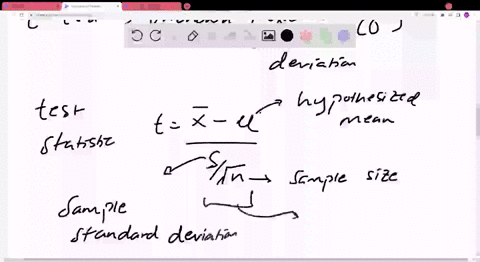 (σ)
deviation
test
statistic
t = x̄ - u
s/√n
hypothesized
mean
sample size
Sample
standard deviation